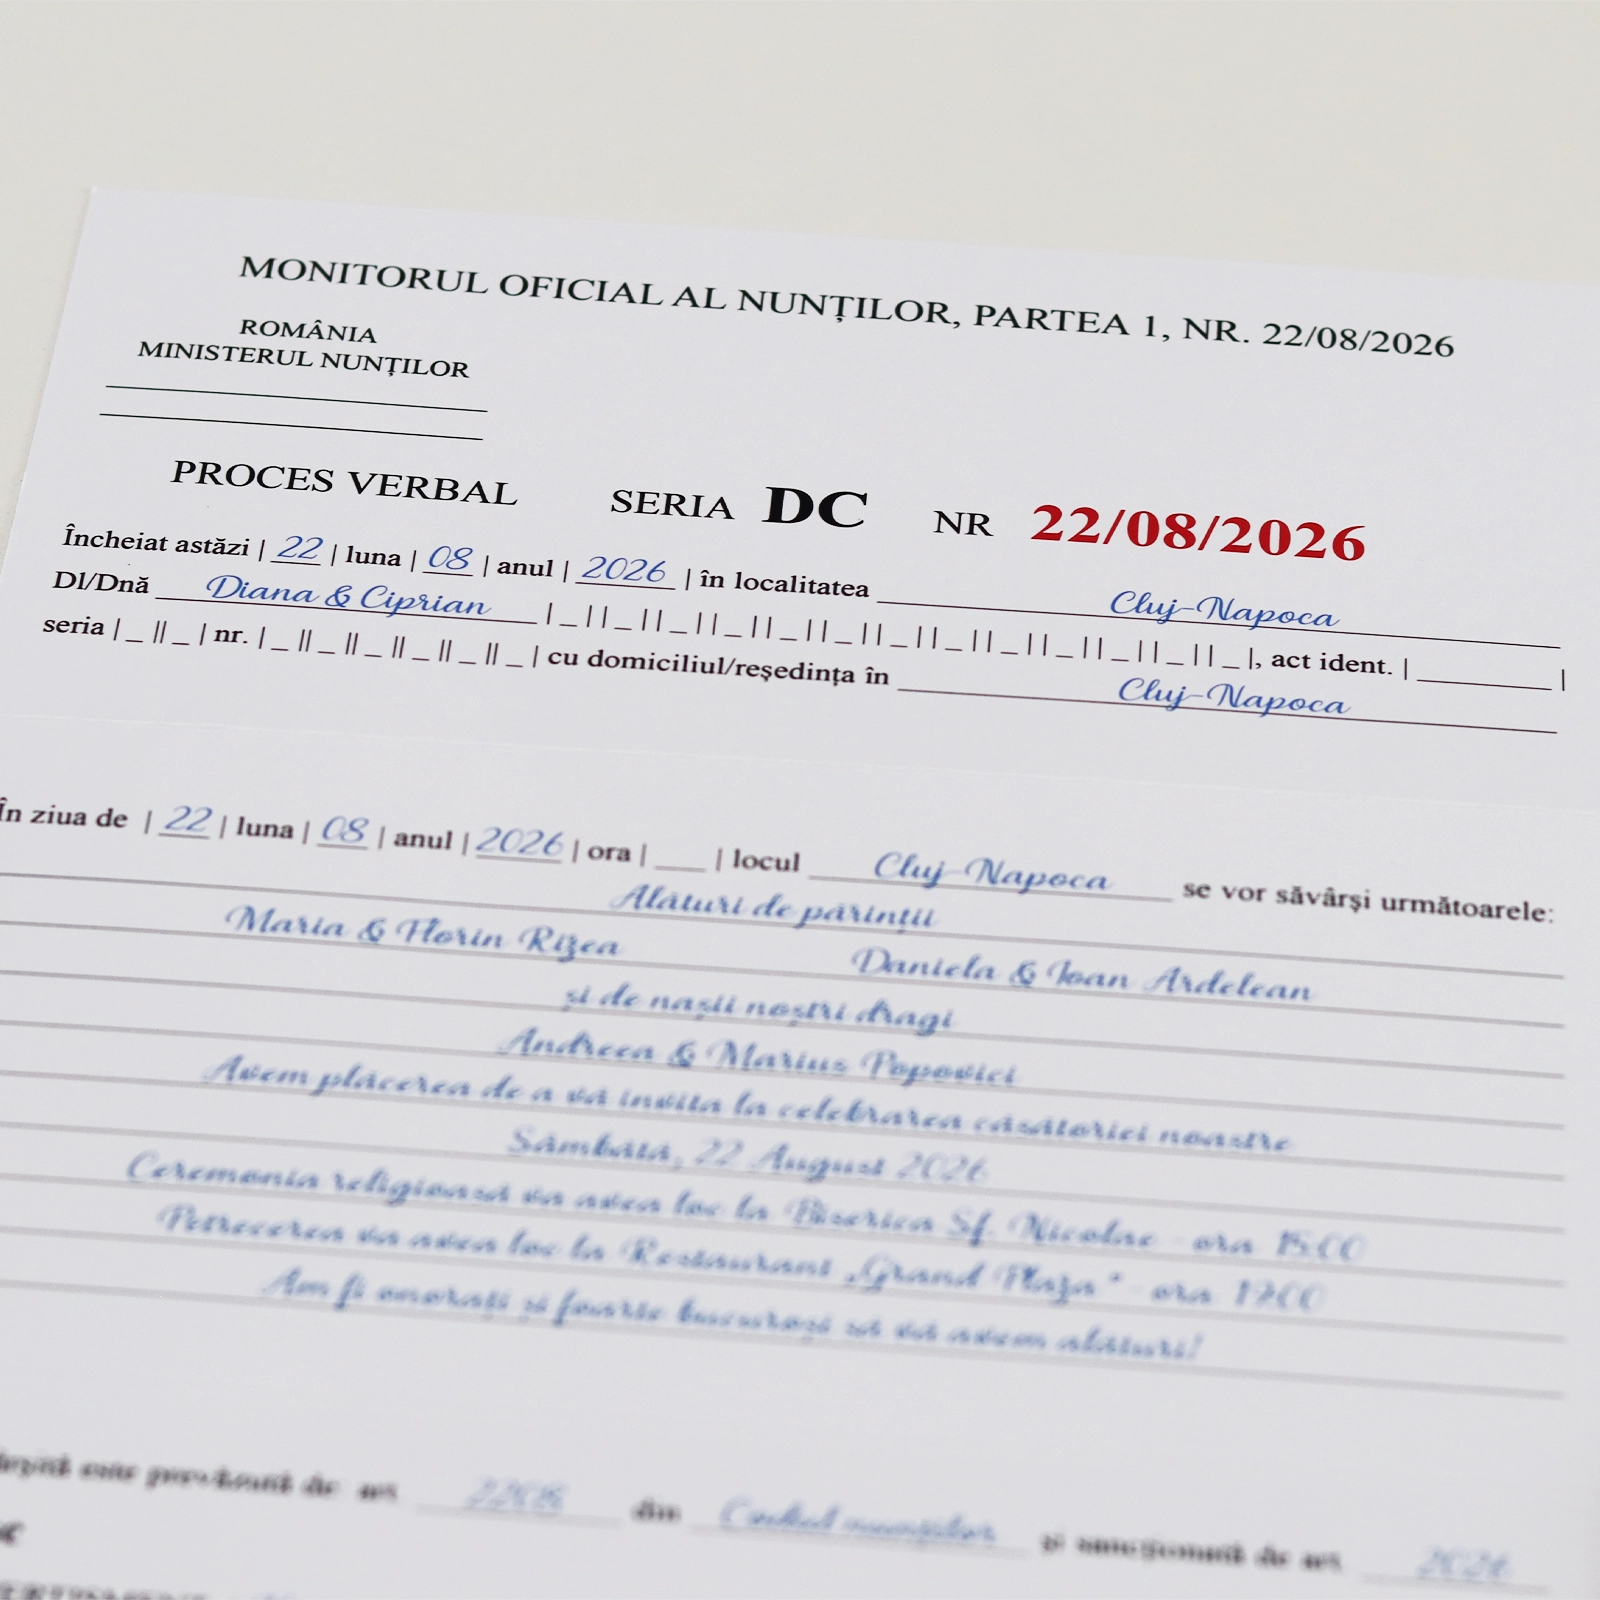 MONITORUL OFICIAL AL NUNȚILOR, PARTEA 1, NR. 22/08/2026
ROMÂNIA
MINISTERUL NUNȚILOR
PROCES VERBAL SERIA DC NR 22/08/2026
Încheiat astăzi | 22 | luna | 08 | anul | 2026 | în localitatea Cluj-Napoca
Dl/Dnă Diana & Ciprian |_||_||_||_||_||_||_||_||_||_||_||_||_|, act ident. |______|
seria |_||_| nr. |_||_||_||_||_||_| cu domiciliul/reședința în Cluj-Napoca
În ziua de | 22 | luna | 08 | anul | 2026 | ora | ___ | locul Cluj-Napoca se vor săvârși următoarele:
Alături de părinții
Maria & Florin Rizea Daniela & Ioan Ardelean
și de nașii noștri dragi
Andreea & Marius Popovici
Avem plăcerea de a vă invita la celebrarea căsătoriei noastre
Sâmbătă, 22 August 2026
Ceremonia religioasă va avea loc la Biserica Sf. Nicolae - ora 15:00
Petrecerea va avea loc la Restaurant „Grand Plaza" - ora
Am fi onorați și foarte bucuroși să vă avem alături!
este prevăzută de art. din Codul nunților și sancționată de art. 2026